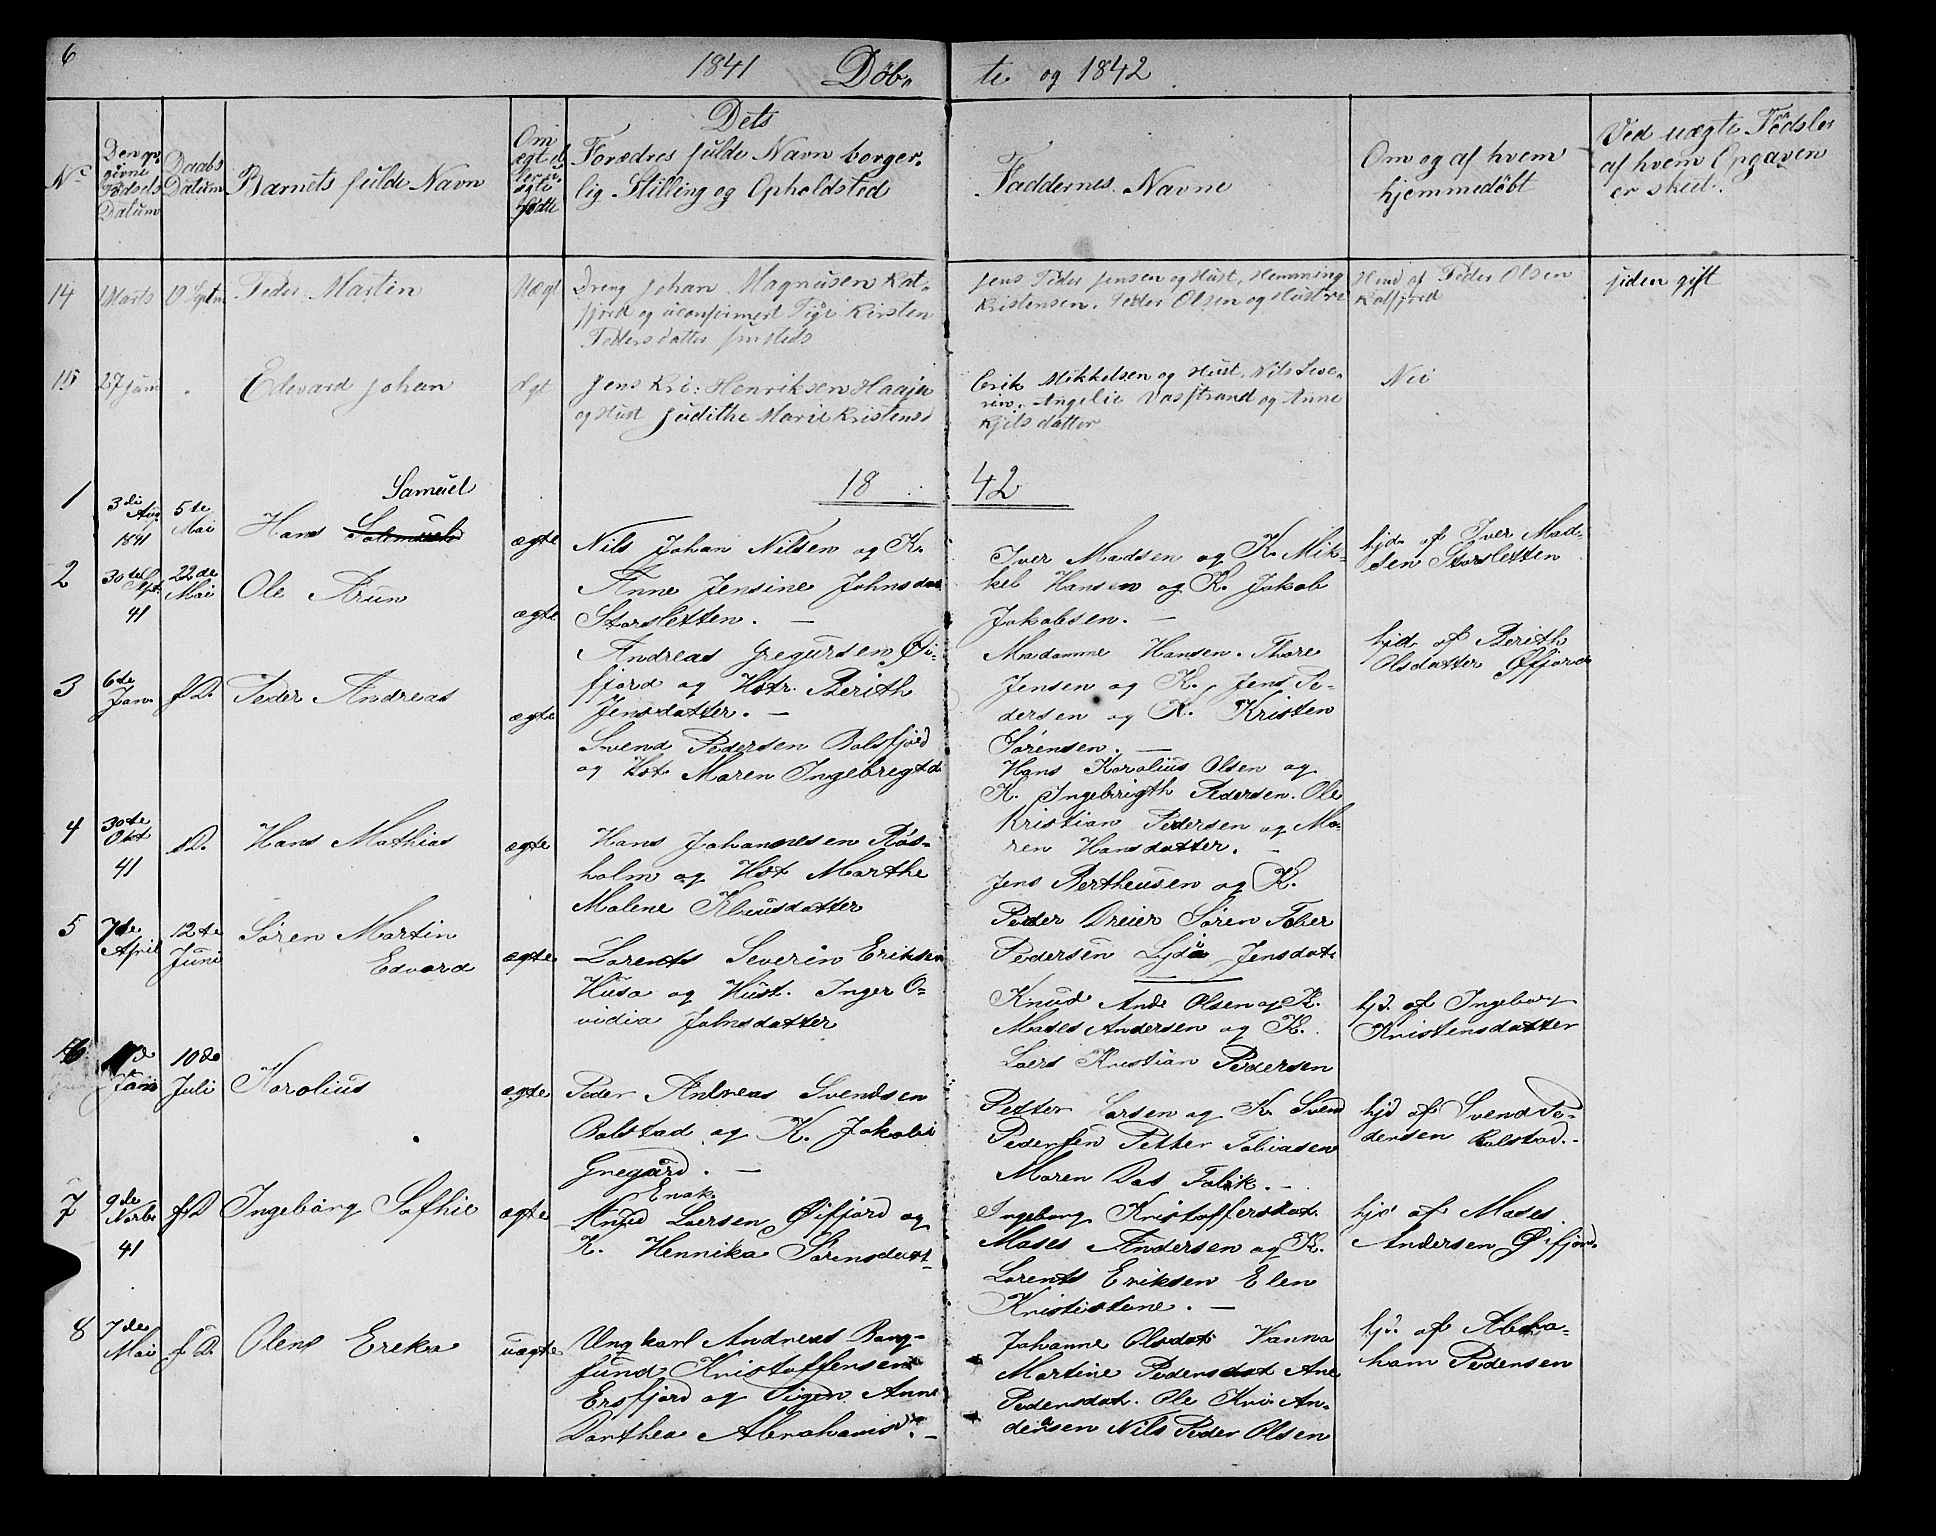 6
1841 Döb- te og 1842
No
Den op-
givne
Fødsels
Datum
Daabs
Datum
Barnets fulde Navn
Om
ægte el-
ler u-
ægte
født
Dets
Forædres fulde Navn borger-
lig Stilling og Opholdsted
Faddernes Navne
Om og af hvem
hjemmedøbt
Ved uægte Fødsler
af hvem Opgaven
er skeet.
14 Marts 19 Septm Peder Martin Uægt
Dreng Johan Magnusen Kat-
fjord og uconfirmert Pige Kirsten
Pedersdatter sinsteds
Jens Peder Jensen og Hust, Hemming
Kristensen, Peder Olsen og Hustru
Hmd af Peder Olsen
Katfjord
siden gift
15 27 Juni Edevard Johan Ægt
Jens Kri: Henriksen Haaja
og Hust Judithe Marie Kristensd
Erik Mikkelsen og Hust, Nils Seve-
rin, Angelie Vasstrand og Anne
Kjelsdatter
Nei
1842
1 3die Aug. 1841 5te Mai Hans Samuel ægte
Nils Johan Nilsen og K.
Anne Jensine Johnsdat
Storsletten. —
Iver Madsen og K. Mik-
kel Hansen og K. Jakob
Jakobsen. —
hjd. af Iver Mad-
sen Storsletten
2 30te Sept. 41 22de Mai Ole Arun ægte
Andreas Gregursen Øi-
fjord og Hstr. Berith
Jensdatter. —
Madamme Hansen. Thore
Jensen og K. Jens Pe-
dersen og K. Kristen
Sørensen. —
hjd. af Berith
Olsdatter Øffjord
3 6te Jan. s.D. Peder Andreas ægte
Svend Pedersen Balsfjord
og Hst. Maren Ingebregtd
Hans Karolius Olsen og
K. Ingebrigth Pedersen. Ole
Kristian Pedersen og Ma-
ren Hansdatter. —
4 30te Okt 41 s.D. Hans Mathias ægte
Hans Johannesen Røs-
holm og Hst Marthe
Malene Klausdatter
Jens Bertheusen og K.
Peder Dreier Søren Tober
Pedersen Lyda Jensdat.
5 7de April 12te Juni Søren Martin
Edvard ægte
Lorents Severin Eriksen
Husø og Hust. Inger O-
vidia Johnsdatter
Knud And. Olsen og K.
Mases Andersen og K.
Laers Kristian Pedersen
hjd. af Ingeborg
Kristensdatter
6 10de Juli Karolius ægte
Peder Andreas Svendsen
Balstad og K. Jakobi
Gregård. —
Petter Larsen og K. Svend
Pedersen Petter Tobiasen
Maren Das Falik. —
hjd af Svend Pe-
dersen Balstad. —
7 9de Novbr 41 s.D Ingebårg Sofhie ægte
Enok
Laersen Øifjord og
K. Hennika Sørensdat-
Ingeborg Kristoffersdat.
Mases Andersen og K.
Lorents Eriksen Elen
Krististene. —
hjd af Mases
Andersen Øifjord.
8 7de Mai s.D. Olene Erika uægte
Ungkarl Andreas Bang-
sund Kristoffersen
Ersfjord og Pigen Anne
Darthea Abrahamsd. —
Johanne Olsdat Hanna
Martine Pedersdat Ane
Pedersdat. Ole Kri. An-
dersen Nils Peder Olsen
hjd. af Abra-
ham Pedersen